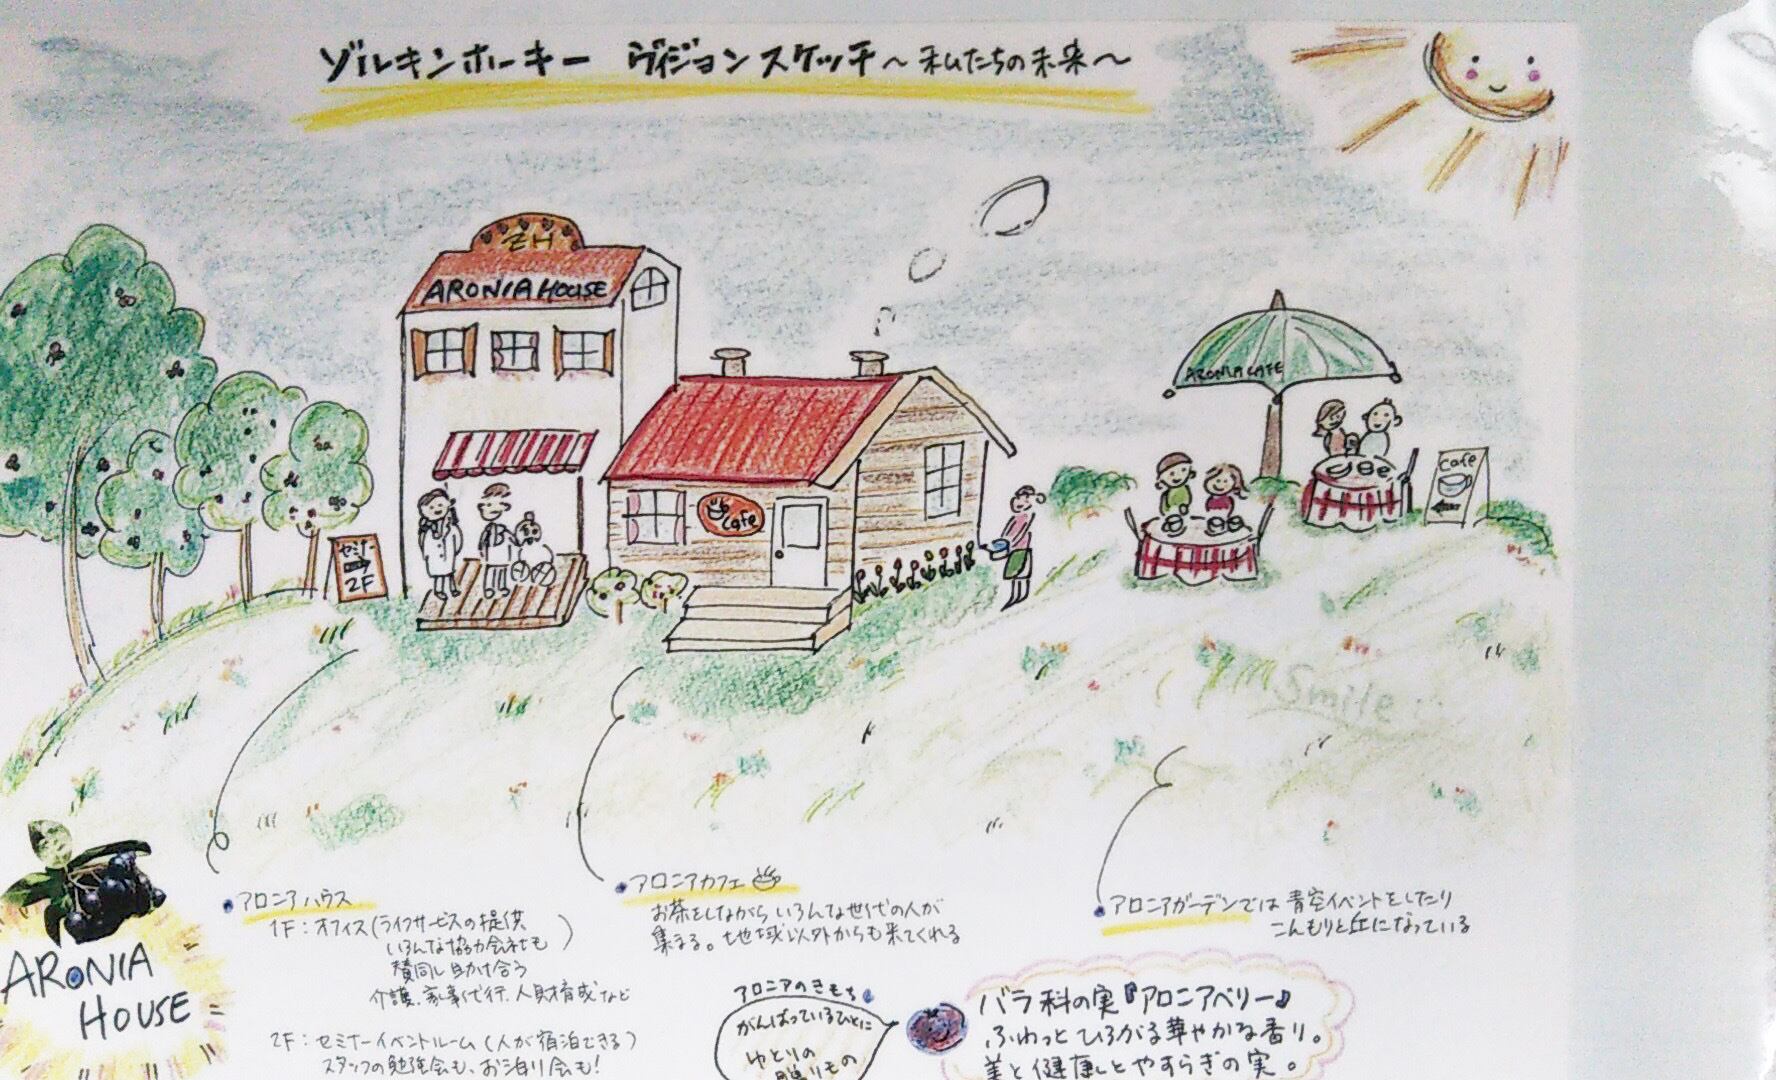 ゾルキンホーキー ヴィジョンスケッチ～私たちの未来～
ZH
ARONIA HOUSE
ARONIA CAFE
cafe
cafe
セミナー
2F
Smile
ARONIA
HOUSE
アロニアハウス
1F:オフィス(ライフサービスの提供
いろんな協力会社も)
賛同し助け合う
介護、家事代行、人財育成など
2F:セミナーイベントルーム(人が宿泊できる)
スタッフの勉強会も、お泊り会も!
アロニアカフェ
お茶をしながらいろんな世代の人が
集まる。地域以外からも来てくれる
アロニアガーデンでは青空イベントをしたり
こんもりと丘になっている
アロニアのきもち
がんばっているひとに
ゆとりの
贈りもの
バラ科の実『アロニアベリー』
ふわっとひろがる華やかな香り。
美と健康とやすらぎの実。